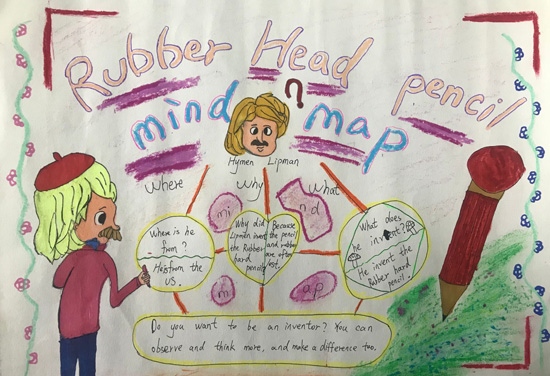 Rubber Head pencil
mind map
?
Hymen Lipman
where
Why
What
mi
n d
Where is he
from?
He's from the
US.
Why did
Lipman invent
the Rubber
hard
pencil?
Because
the pencil
and rubber
are often
lost.
What does
he invent?
He invent the
Rubber hard
pencil.
m
a p
Do you want to be an inventor? You can
observe and think more, and make a difference too.